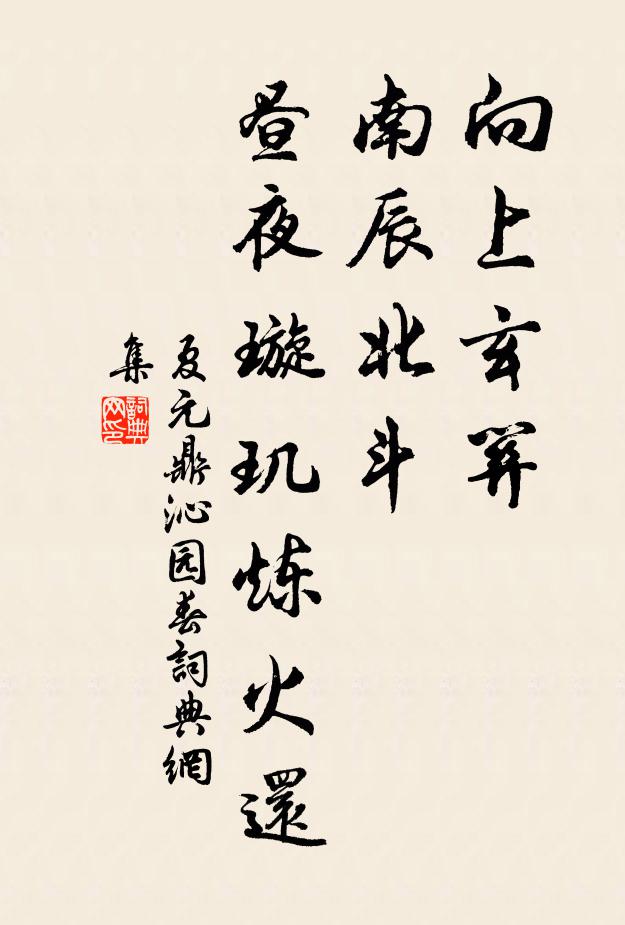 向上玄关
南辰北斗
昼夜璇玑炼火還
夏元鼎沁园春詞典網
集
詞典
网印